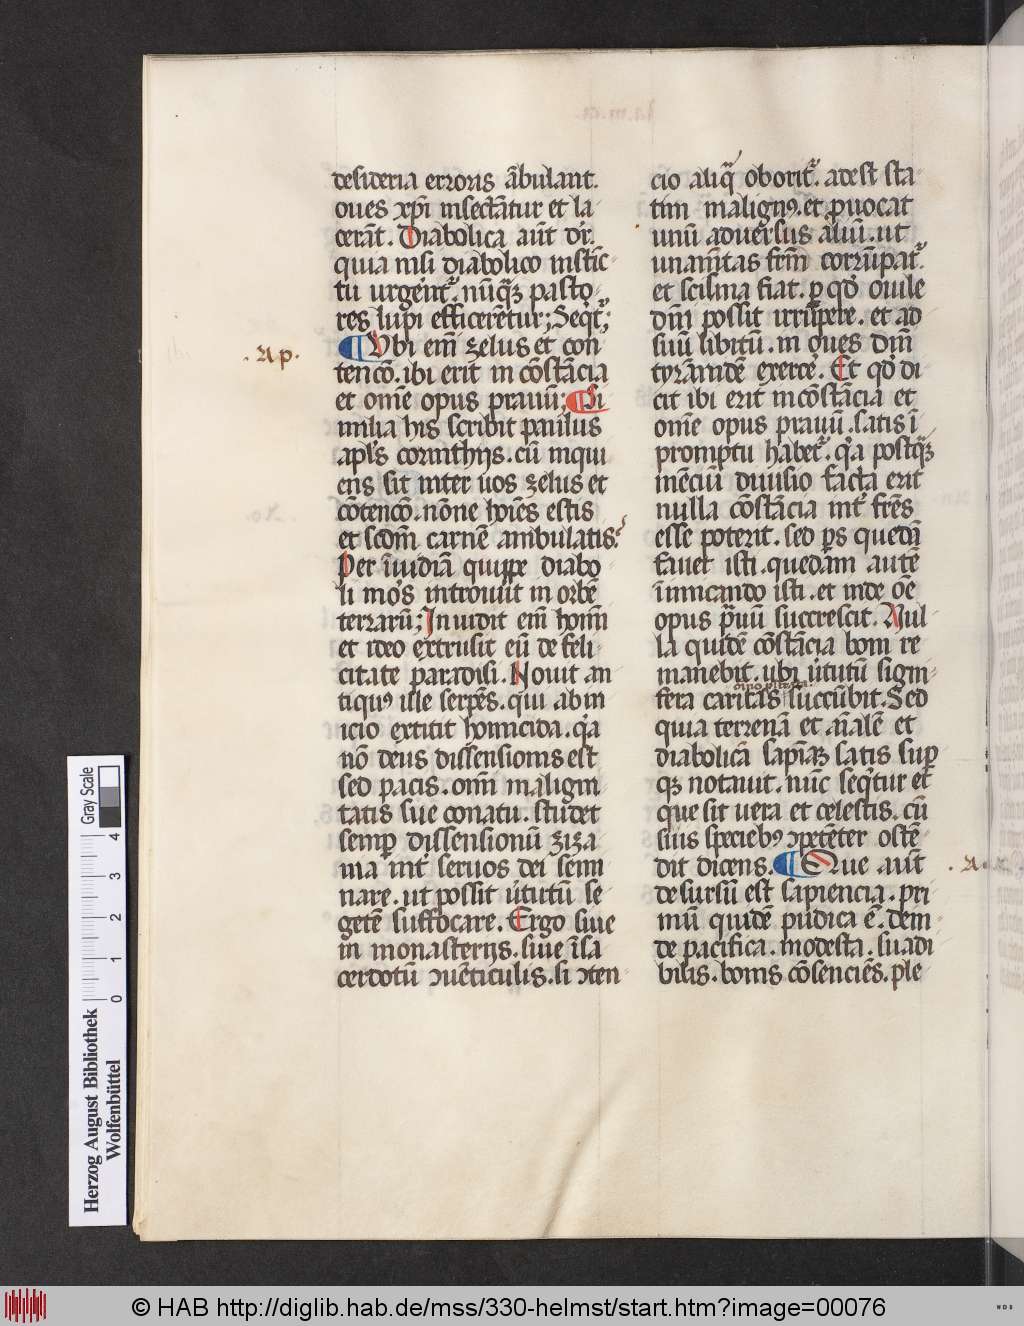 desideria erroris ābulant.
oues xp̄i insectātur et la
cerāt. Diabolica aūt dr̄.
quia nisi diabolico instīc
tu urgent᷑. nūq̄ꝫ pasto
res lupi efficerētur; Seqt᷑;
¶ Ubi em̄ zelus et con
tencō. ibi erit in cōstācia
et om̄e opus prauū; ¶ Si
milia his scribit paulus
apl̄s corinthijs. cū inqui
ens sit inter uos zelus et
cōtencō. nōne hoīes estis
et scd̄m carnē ambulatis?
Per īuidiā quippe diabo
li mors introiuit in orbē
terrarū; Inuidit em̄ hoīm
et ideo extrusit eū de feli
citate paradisi. Nouit an
tiquꝰ iste serpēs. qui ab in
icio extitit homicida. qa
nō deus dissensionis est
sed pacis. om̄i maligni
tatis sue conatu. studet
semꝑ dissensionū ziza
nia int̓ seruos dei semi
nare. ut possit u̓tutū se
getē suffocare. Ergo siue
in monasterijs. siue ī sa
cerdotū ꝯuēticulis. si ꝯten
cio aliq̄ oborit᷑. adest sta
tim malignꝰ. et ꝓuocat
unū aduersus aliū. ut
unanītas frm̄ corrūpat᷑.
et scisma fiat. ꝑ qd̓ ouile
dn̄i possit irrūpere. et ad
suū libitū. in oues dn̄i
tyrānidē exercē. Et qd̓ di
cit ibi erit incōstācia et
om̄e opus prauū. satis ī
promptu habet᷑. qa postq̄ꝫ
inēciū diuisio facta erit
nulla cōstācia int̓ fr̄es
esse poterit. sed ps quedā
fauet isti. quedam autē
inimicando isti. et inde oē
opus p̄uū succrescit. Nul
la quidē cōstācia boni re
manebit. ubi u̓tutū signi
fera caritas succūbit. Sed
quia terrenā et aīalē et
diabolicā sapiāꝫ satis suꝑ
qꝫ notauit. nūc seq̄tur et
que sit uera et celestis. cū
suis speciebꝰ ꝯpetēter ostē
dit dicens. ¶ Que aūt
desursū est sapiencia. pri
mū quidē pudica ē. dein
de pacifica. modesta. suadi
bilis. bonis cōsenciēs. ple
.Ap.
Herzog August Bibliothek
Wolfenbüttel
0 1 2 3 4
Gray Scale
© HAB http://diglib.hab.de/mss/330-helmst/start.htm?image=00076